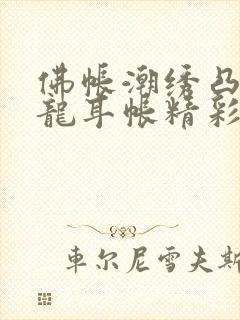 佛帳潮绣凸
龍耳帳精彩
車尔尼雪夫斯